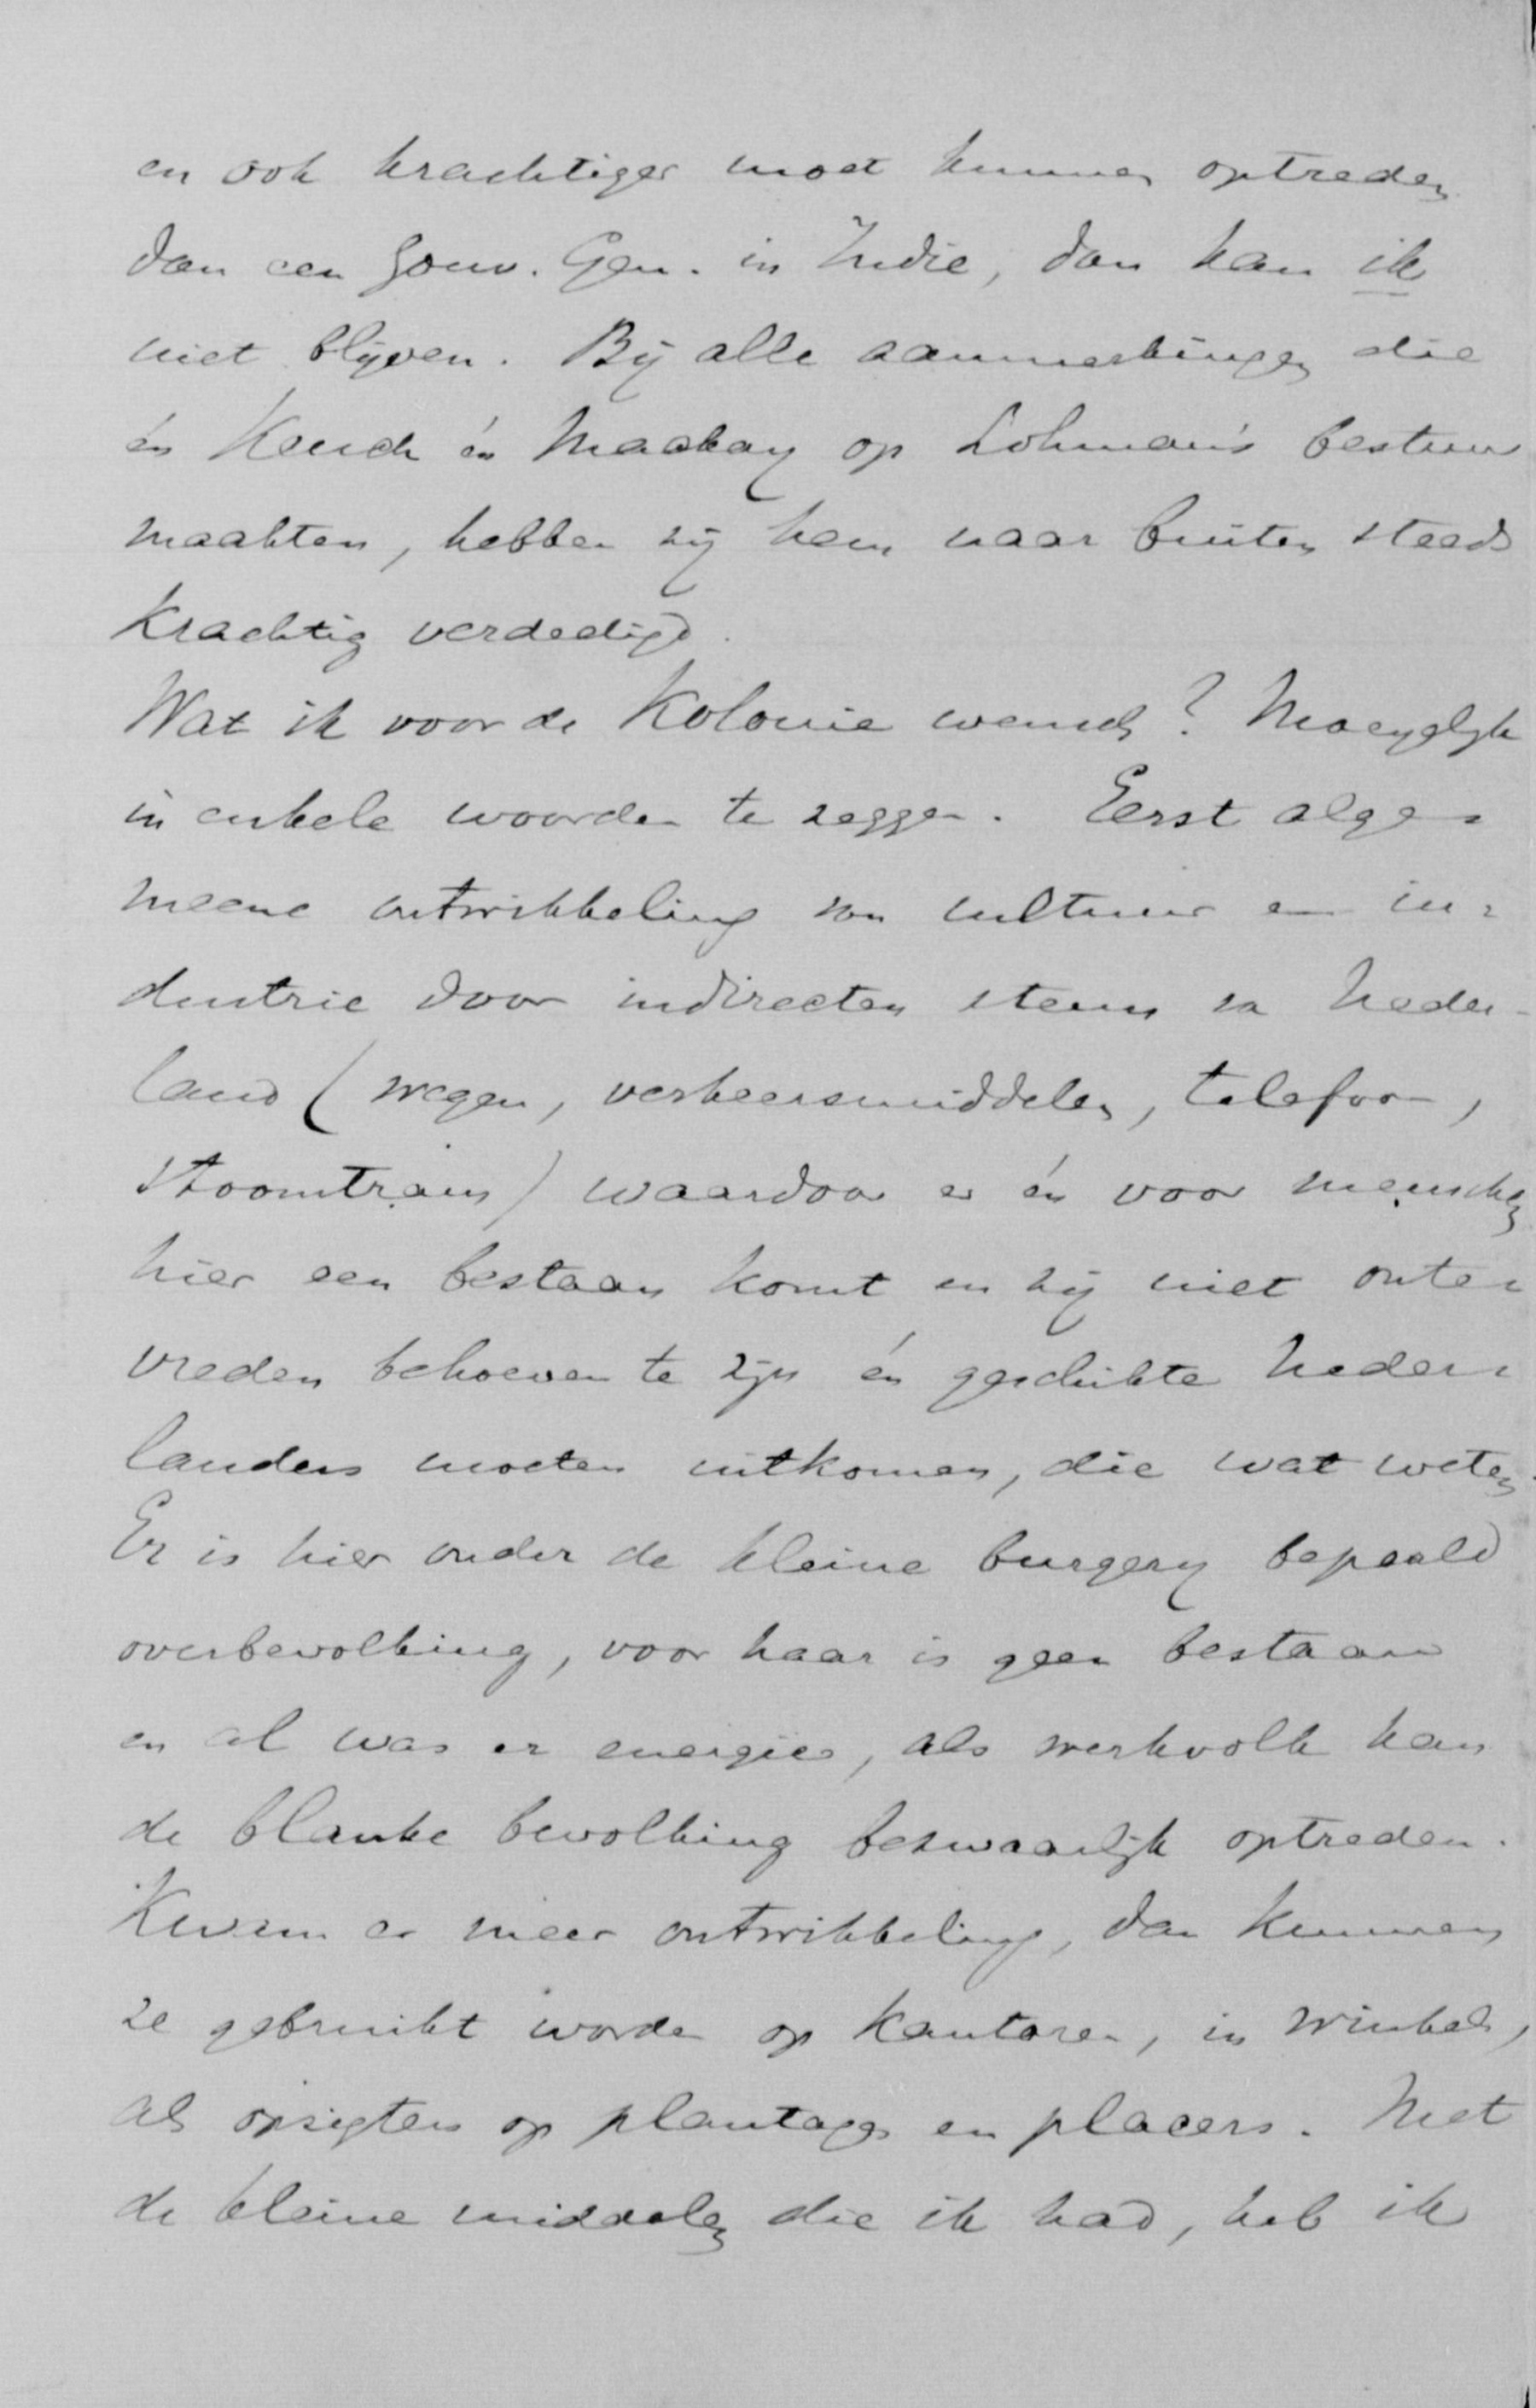 en ook krachtiger moet kunnen optreden
dan een Gouv. Gen. in Indie, dan kan ik
niet blijven. Bij alle aanmerkingen die
én Keuch. én Mackay op Lohman's bestuur
maakten, hebben zij hem naar buiten steeds
krachtig verdedigd.
Wat ik voor de Kolonie wensch? Moeyelyk
in enkele woorden te zeggen. Eerst alge=
meene ontwikkeling van cultuur en in=
dustrie door indirecten steun va Neder-
land (wegen, verkeersmiddelen, telefoon,
stoomtram) waardoor er én voor menschen
hier een bestaan komt en zij niet onte=
vreden behoeven te zijn én geschikte Neder=
landers moeten uitkomen, die wat weten.
Er is hier onder de kleine burgery bepaald
overbevolking, voor haar is geen bestaan
en al was er energie, als werkvolk kan
de blanke bevolking bezwaarlijk optreden.
Kwam er meer ontwikkeling, dan kunnen
ze gebruikt worden op kantoren, in winkels,
als opzigters op plantages en placers. Met
de kleine middelen die ik had, heb ik